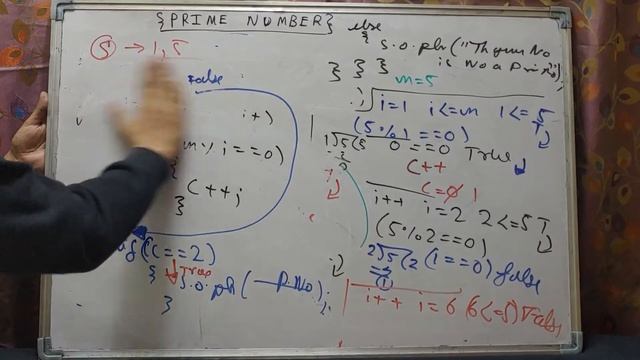 {PRIME NUMBER}
5 → 1, 5
false
i++)
i==0)
{
C++;
}
if(C==2)
{ True
S.O.pln( P.No);
}
else
{ S.O.pln("The given No
is No a Prime");
} } }
n=5
i=1 i<=n 1<=5
T
(5%1==0)
1)5(5 0==0 True
5
0
C++
C=0 1
i++ i=2 2<=5 T
(5%2==0)
2)5(2 (1==0) false
4
1
i++ i=6 (6<=5) False